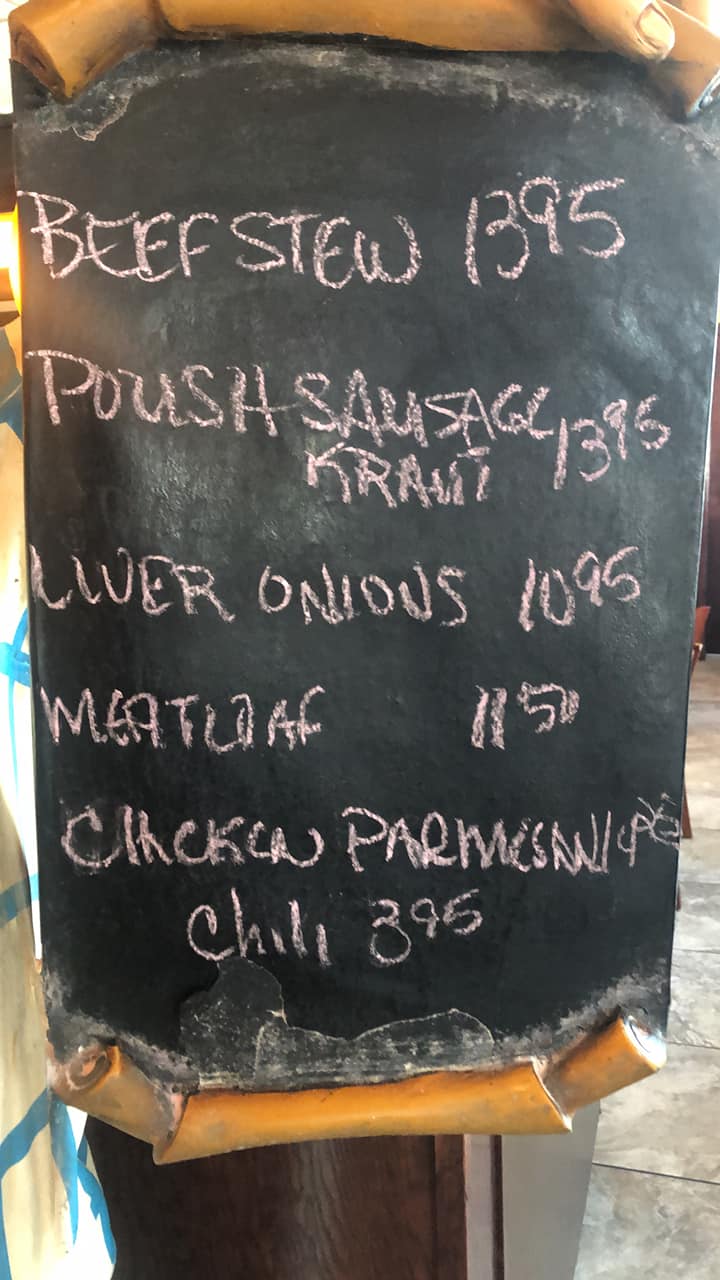 BEEF STEW 1395
POLISH SAUSAGE 1395
KRAUT
LIVER ONIONS 1095
MEATLOAF 1150
CHICKEN PARMESAN
Chili 395